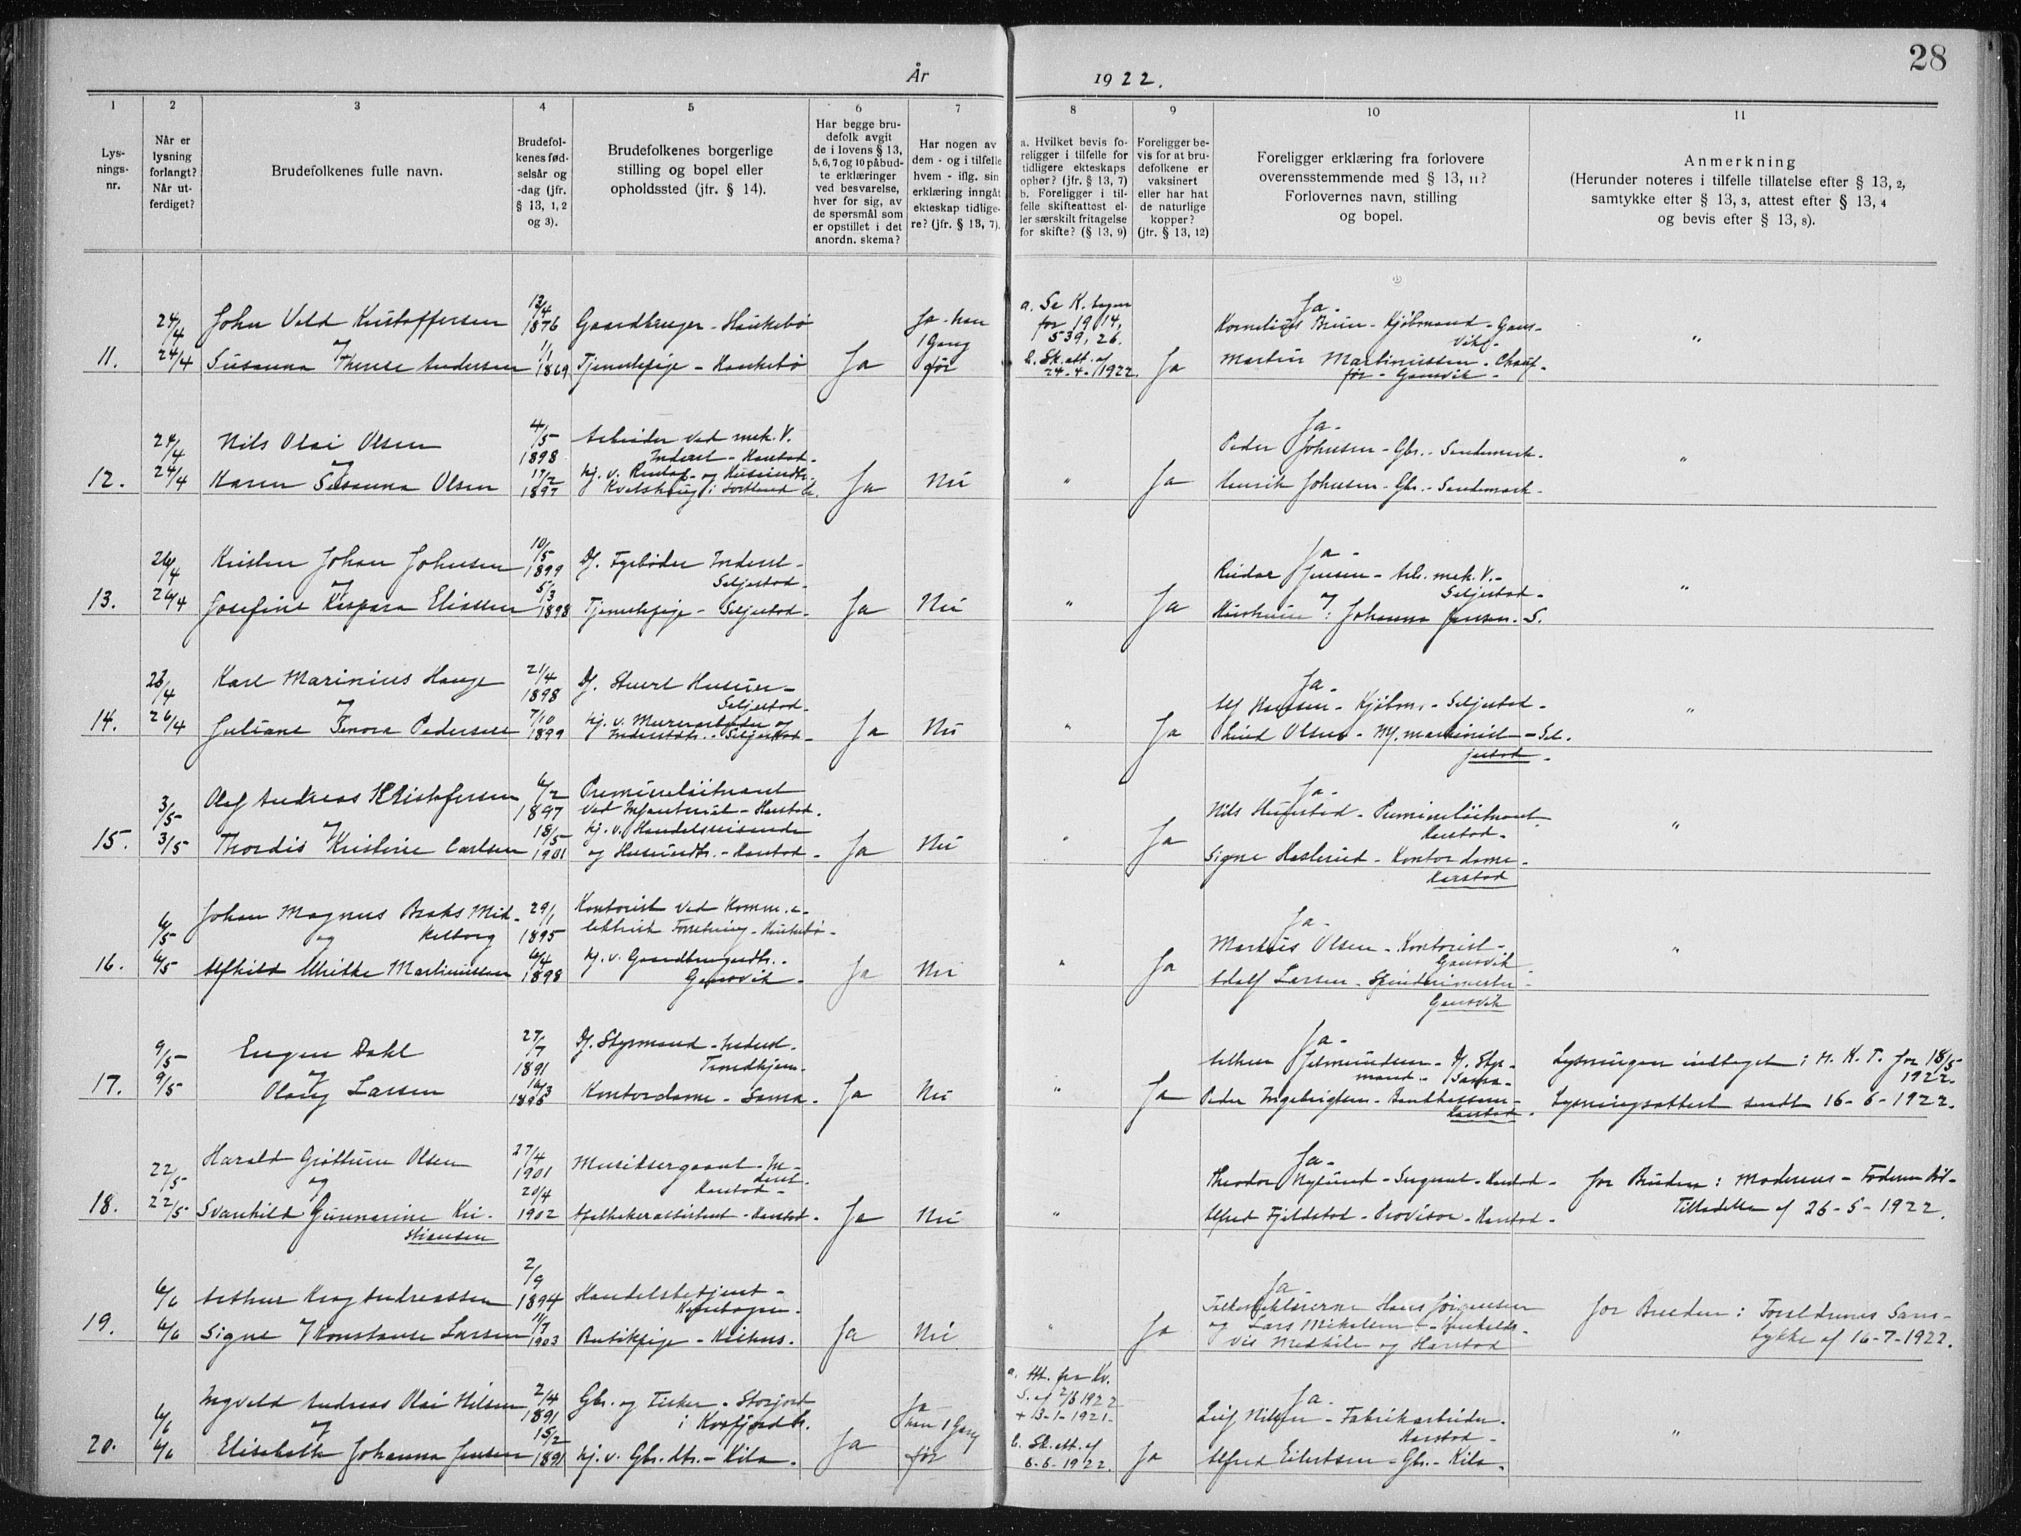 28
År 1922.
1
2
3
4
5
6
7
8
9
10
11
Lys-
nings-
nr.
Når er
lysning
forlangt?
Når ut-
ferdiget?
Brudefolkenes fulle navn.
Brudefol-
kenes fød-
selsår og
-dag (jfr.
§ 13, 1, 2
og 3).
Brudefolkenes borgerlige
stilling og bopel eller
opholdssted (jfr. § 14).
Har begge bru-
defolk avgit
de i lovens § 13,
5, 6, 7 og 10 påbud-
te erklæringer
ved besvarelse,
hver for sig, av
de spørsmål som
er opstillet i det
anordn. skema?
Har nogen av
dem - og i tilfelle
hvem - iflg. sin
erklæring inngåt
ekteskap tidlige-
re? (jfr. § 13, 7).
a. Hvilket bevis fo-
religger i tilfelle for
tidligere ekteskaps
ophør? (jfr. § 13, 7)
b. Foreligger i til-
felle skifteattest el-
ler særskilt fritagelse
for skifte? (§ 13, 9)
Foreligger be-
vis for at bru-
defolkene er
vaksinert
eller har hat
de naturlige
kopper?
(jfr. § 13, 12)
Foreligger erklæring fra forlovere
overensstemmende med § 13, 11?
Forlovernes navn, stilling
og bopel.
Anmerkning
(Herunder noteres i tilfelle tillatelse efter § 13, 2,
samtykke efter § 13, 3, attest efter § 13, 4
og bevis efter § 13, 8).
11.
24/4
24/4
John Kristoffersen
og
Susanna Therese Andersen
13/4
1876
1/1
1869
Gaardbruger - Haukebø
Tjenestepige - Haukebø
Ja
Ja - han
1 Gang
før
a. Se K. bogen
for 1914,
539, 26.
b. Sk. att. af
24-4-1922.
Ja
Ja -
Kornelius Brun - Kjøbmand - Gans-
vik -
Martin Martinussen - Chauf-
før - Gansvik -
"
12.
24/4
24/4
Nils Olai Olsen
og
Karen Susanna Olsen
4/5
1898
17/2
1897
Arbeider ved mek. V.
Inderst - Harstad -
Ja
Nei
"
Ja
Ja -
Peder Johnsen - Gbr. - Sandemark -
Henrik Johnsen - Gbr. - Sandemark -
"
13.
26/4
26/4
Kristen Johan Johnsen
og
Josefine Kaspara Eliassen
10/5
1899
5/3
1898
Df. Fyrbøder Inderst -
Seljestad -
Tjenestepige - Seljestad -
Ja
Nei
"
Ja
Ja -
Reidar Jensen - Arb. mek. V. -
Seljestad -
Hustruen: Johanna Jensen - S.
"
14.
26/4
26/4
Karl Marinius Hauge
og
Juliane Lenora Pedersen
21/4
1898
7/10
1899
Df. Stuert Huseier -
Seljestad -
hj. v. Murerarbeider og
Inderstdtr. - Seljestad -
Ja
Nei
"
Ja
Ja -
Alf Hansen - Kjøbm. - Seljestad -
Olsen - Mf. maskinist - Sel-
jestad -
"
15.
3/5
3/5
Olaf Andreas Kristofersen
og
Thordis Kristine Carlsen
6/2
1897
18/5
1901
Premierløitnant
ved Infanteriet - Harstad.
hj. v. Handelsreisende
og Huseierdtr. - Harstad -
Ja
Nei
"
Ja
Ja -
Nils Hunstad - Premierløitnant
Harstad -
Signe Haslerud - Kontordame -
Harstad
"
16.
6/5
6/5
Johan Magnus Braks Mik-
kelborg
og
Alfhild Ulrikke Martinussen
29/1
1895
6/4
1898
Kontorist ved Komm. e-
lektrisk Forretning - Haukebø -
hj. v. Gaardbrugerdtr. -
Gansvik -
Ja
Nei
"
Ja
Ja -
Markus Olsen - Kontorist -
Gansvik
Adolf Larsen - Spinderimester -
Gansvik
"
17.
9/5
9/5
Eugen Dahl
og
Olaug Larsen
27/7
1891
16/3
1896
Df. Styrmand - Inderst -
Trondhjem -
Kontordame - Sama.
Ja
Nei
"
Ja
Ja -
Df. Styr-
mand - Sama -
Peder Ingebrigtsen - Bankkasserer -
Harstad -
Lysningen indtaget i H. K. T. for 18/5
1922.
Lysningsattest sendt 16-6-1922.
18.
22/5
22/5
Harald Grøttum Olsen
og
Svanhild Gunnarine Kri-
stiansen
27/4
1901
20/4
1902
Musiksergeant - In-
derst.
Harstad -
Apothekerassistent - Harstad -
Ja
Nei
"
Ja -
Theodor Nylund - Sergeant - Harstad -
Alfred Fjeldstad - Provisor - Harstad -
for Bruden: Moderens - Faderen død -
Tilladelse af 26-5-1922.
19.
6/6
6/6
Arthur Krog Andreassen
og
Signe Konstanse Larsen
2/9
1894
11/7
1903
Handelsbetjent -
Kjøbehagen -
Butikpige -
Ja
Nei
"
Ja
Ja -
Hans Jørgensen
og Lars Mikalsen - henholds-
vis Medkila og Harstad
for Bruden: Forældrenes Sam-
tykke af 16-7-1922.
20.
6/6
6/6
Ingvald Andreas Olai Nilsen
og
Elisabeth Johanna Jensen
2/4
1891
15/2
1891
Gbr. og Fisker - Storjord
i Korfjord
hj. v. Gbr. dtr. - Kila -
Ja
Ja
han 1 Gang
før
a. Att. fra Kv.
S. af 2/6 1922
+ 13-1-1921 -
b. Sk. att. af
6-6-1922.
Ja
Ja -
Leif Nilsen - Fabrikarbeider -
Harstad -
Alfred Eilertsen - Gbr. - Kila -
"